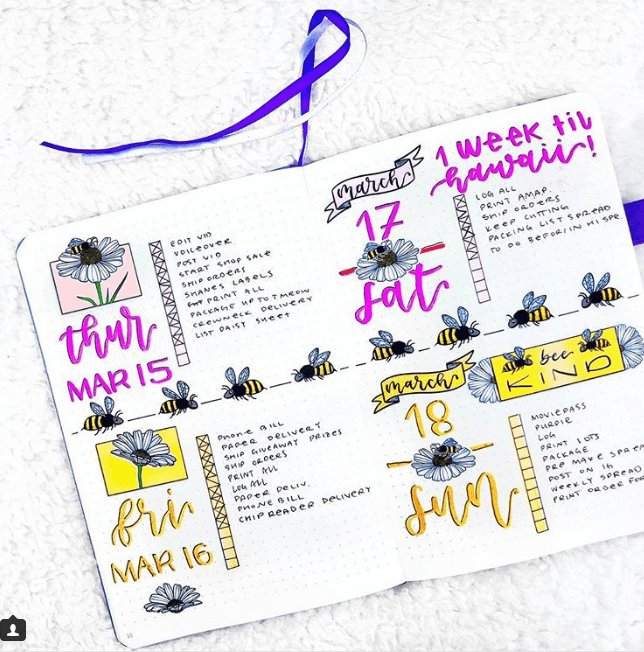 thur
MAR 15
EDIT VID
VOICEOVER
POST VID
START SHOP SALE
SHIP ORDERS
SHANES LABELS
PRINT ALL
PACKAGE UP TO TMROW
CREWNECK DELIVERY
LIST DAISY SHEET
fri
MAR 16
PHONE BILL
PAPER DELIVERY
SHIP GIVEAWAY PRIZES
SHIP ORDERS
PRINT ALL
LOG ALL
PAPER DELIV.
PHONE BILL
CHIP READER DELIVERY
march
17
sat
1 week til
hawaii!
LOG ALL
PRINT AMAP.
SHIP ORDERS
KEEP CUTTING
PACKING LIST SPREAD
TO DO BEFOR/IN HI SPR.
march
18
sun
bee
KIND
MOVIEPASS
PURPLE
LOG
PRINT LOTS
PACKAGE
PRE MAKE SPREA
POST ON IG
WEEKLY SPREA
PRINT ORDER FOR